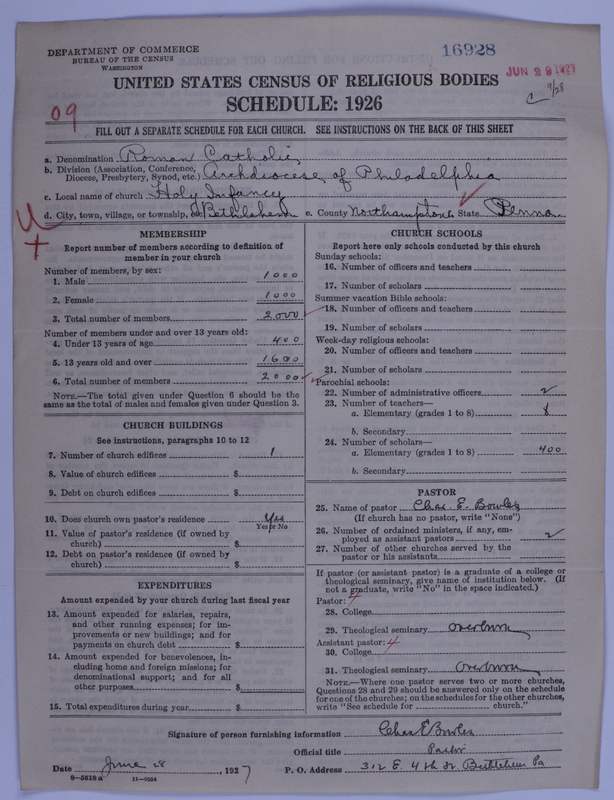 DEPARTMENT OF COMMERCE
BUREAU OF THE CENSUS
WASHINGTON
16928
JUN 29 1927
C 9/28
UNITED STATES CENSUS OF RELIGIOUS BODIES
SCHEDULE: 1926
09
FILL OUT A SEPARATE SCHEDULE FOR EACH CHURCH. SEE INSTRUCTIONS ON THE BACK OF THIS SHEET
a. Denomination Roman Catholic
b. Division (Association, Conference, Diocese, Presbytery, Synod, etc.) Archdiocese of Philadelphia
c. Local name of church Holy Infancy
d. City, town, village, or township, Bethlehem e. County Northampton State Penna
MEMBERSHIP
Report number of members according to definition of
member in your church
Number of members, by sex:
1. Male 1000
2. Female 1000
3. Total number of members 2000
Number of members under and over 13 years old:
4. Under 13 years of age 400
5. 13 years old and over 1600
6. Total number of members 2000
NOTE.—The total given under Question 6 should be
same as the total of males and females given under Question 3.
CHURCH BUILDINGS
See instructions, paragraphs 10 to 12
7. Number of church edifices 1
8. Value of church edifices $
9. Debt on church edifices $
10. Does church own pastor's residence Yes
Yes or No
11. Value of pastor's residence (if owned by
church) $
12. Debt on pastor's residence (if owned by
church) $
EXPENDITURES
Amount expended by your church during last fiscal year
13. Amount expended for salaries, repairs,
and other running expenses; for im-
provements or new buildings; and for
payments on church debt $
14. Amount expended for benevolences, in-
cluding home and foreign missions; for
denominational support; and for all
other purposes $
15. Total expenditures during year $
CHURCH SCHOOLS
Report here only schools conducted by this church
Sunday schools:
16. Number of officers and teachers
17. Number of scholars
Summer vacation Bible schools:
18. Number of officers and teachers
19. Number of scholars
Week-day religious schools:
20. Number of officers and teachers
21. Number of scholars
Parochial schools:
22. Number of administrative officers 2
23. Number of teachers—
a. Elementary (grades 1 to 8) 8
b. Secondary
24. Number of scholars—
a. Elementary (grades 1 to 8) 400
b. Secondary
PASTOR
25. Name of pastor Chas. E. Bowles
(If church has no pastor, write "None")
26. Number of ordained ministers, if any, em-
ployed as assistant pastors 2
27. Number of other churches served by the
pastor or his assistants
If pastor (or assistant pastor) is a graduate of a college or
theological seminary, give name of institution below. (If
not a graduate, write "No" in the space indicated.)
Pastor:
28. College
29. Theological seminary Overbrook
Assistant pastor: 4
30. College
31. Theological seminary Overbrook
NOTE.—Where one pastor serves two or more churches,
Questions 28 and 29 should be answered only on the schedule
for one of the churches; on the schedules for the other churches,
write "See schedule for church."
Signature of person furnishing information Chas E Bowles
Official title Pastor
Date June 28, 1927 P. O. Address 312 E. 4th St. Bethlehem Pa
9-5518a 11-9264